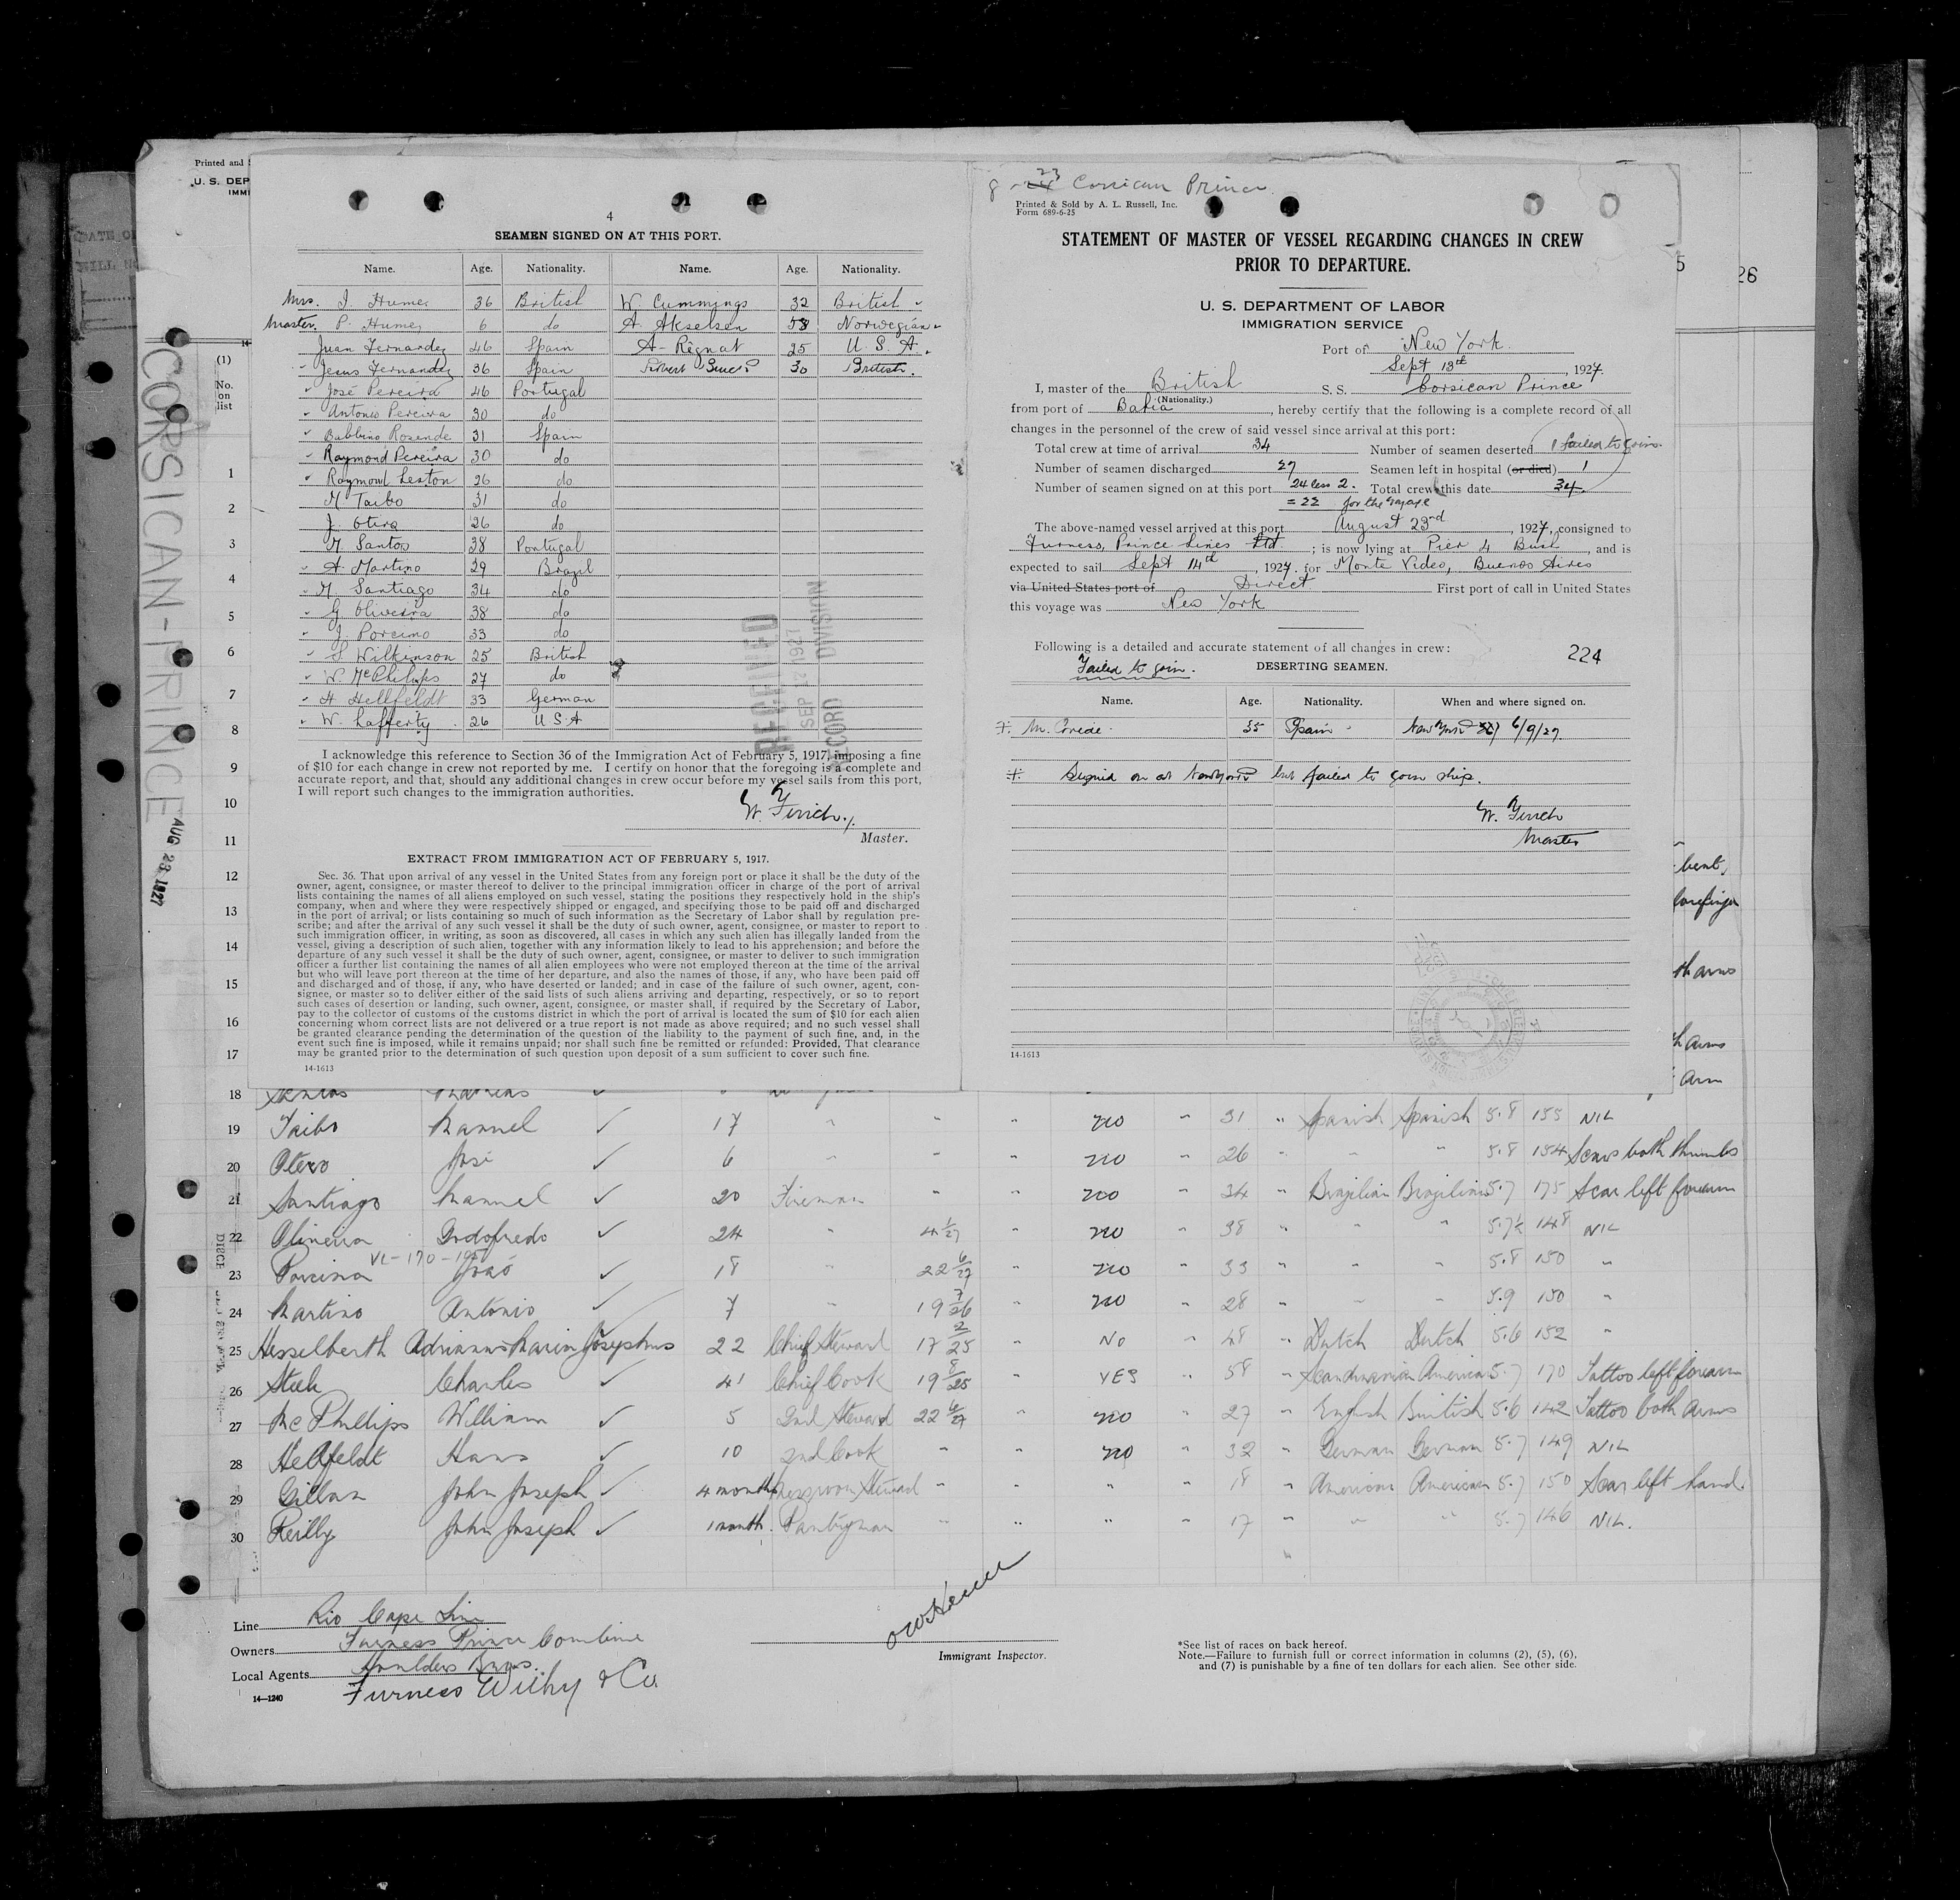 Printed and
U. S. DEP
IMMI
4
SEAMEN SIGNED ON AT THIS PORT.
Name. Age. Nationality. Name. Age. Nationality.
Mrs. J. Humes 36 British W. Cummings 32 British
Master. P. Humes 6 do A. Akselsen 53 Norwegian
Juan Fernandez 46 Spain A- Regnat 25 U. S. A.
Jesus Fernandez 36 Spain Robert 30 British.
José Pereira 46 Portugal
Antonio Pereira 30 do
Babbino Rosende 31 Spain
Raymond Pereira 30 do
Raymond Leston 26 do
M Taibo 31 do
J. Otero 26 do
M Santos 38 Portugal
A. Martino 29 Brazil
M. Santiago 34 do
G Oliveira 38 do
J. Porcino 33 do
S Wilkinson 25 British
W. McPhilips 27 do
H Hellfeldt 33 German
W. Lafferty 26 U.S.A
RECEIVED
SEP 1927
RECORD DIVISION
I acknowledge this reference to Section 36 of the Immigration Act of February 5, 1917, imposing a fine
of $10 for each change in crew not reported by me. I certify on honor that the foregoing is a complete and
accurate report, and that, should any additional changes in crew occur before my vessel sails from this port,
I will report such changes to the immigration authorities.
W. Finch
Master.
EXTRACT FROM IMMIGRATION ACT OF FEBRUARY 5, 1917.
Sec. 36. That upon arrival of any vessel in the United States from any foreign port or place it shall be the duty of the
owner, agent, consignee, or master thereof to deliver to the principal immigration officer in charge of the port of arrival
lists containing the names of all aliens employed on such vessel, stating the positions they respectively hold in the ship's
company, when and where they were respectively shipped or engaged, and specifying those to be paid off and discharged
in the port of arrival; or lists containing so much of such information as the Secretary of Labor shall by regulation pre-
scribe; and after the arrival of any such vessel it shall be the duty of such owner, agent, consignee, or master to report to
such immigration officer, in writing, as soon as discovered, all cases in which any such alien has illegally landed from the
vessel, giving a description of such alien, together with any information likely to lead to his apprehension; and before the
departure of any such vessel it shall be the duty of such owner, agent, consignee, or master to deliver to such immigration
officer a further list containing the names of all alien employees who were not employed thereon at the time of the arrival
but who will leave port thereon at the time of her departure, and also the names of those, if any, who have been paid off
and discharged and of those, if any, who have deserted or landed; and in case of the failure of such owner, agent, con-
signee, or master so to deliver either of the said lists of such aliens arriving and departing, respectively, or so to report
such cases of desertion or landing, such owner, agent, consignee, or master shall, if required by the Secretary of Labor,
pay to the collector of customs of the customs district in which the port of arrival is located the sum of $10 for each alien
concerning whom correct lists are not delivered or a true report is not made as above required; and no such vessel shall
be granted clearance pending the determination of the question of the liability to the payment of such fine, and, in the
event such fine is imposed, while it remains unpaid; nor shall such fine be remitted or refunded: Provided, That clearance
may be granted prior to the determination of such question upon deposit of a sum sufficient to cover such fine.
14-1613
8 - 23 Corsican Prince
Printed & Sold by A. L. Russell, Inc.
Form 689-6-25
STATEMENT OF MASTER OF VESSEL REGARDING CHANGES IN CREW
PRIOR TO DEPARTURE.
U. S. DEPARTMENT OF LABOR
IMMIGRATION SERVICE
Port of New York
Sept 13th, 1927.
I, master of the British S. S. Corsican Prince
(Nationality.)
from port of Bahia, hereby certify that the following is a complete record of all
changes in the personnel of the crew of said vessel since arrival at this port:
Total crew at time of arrival 34 Number of seamen deserted 1 failed to join.
Number of seamen discharged 27 Seamen left in hospital (or died) 1
Number of seamen signed on at this port 24 less 2. Total crew this date 34.
= 22 for the voyage
The above-named vessel arrived at this port August 23rd, 1927, consigned to
Furness, Prince Lines Ltd.; is now lying at Pier 4 Bush, and is
expected to sail Sept 14th, 1927. for Monte Video, Buenos Aires
via United States port of Direct First port of call in United States
this voyage was New York
Following is a detailed and accurate statement of all changes in crew: 224
Failed to join. DESERTING SEAMEN.
Name. Age. Nationality. When and where signed on.
M. Coride 35 Spain New York 6/9/27.
Signed on at New York but failed to join ship.
W. Finch
Master
14-1613
CORSICAN-PRINCE
AUG 23 1927
(1)
No.
on
list
1
2
3
4
5
6
7
8
9
10
11
12
13 forefinger
14
15 th arms
16
17 h arms
18 arm
19 Taibo Manuel 17 " " " no " 31 " Spanish Spanish 5.8 155 NIL
20 Otero José 6 " " " no " 26 " " " 5.8 154 Scars both thumbs
21 Santiago Manuel 20 Fireman " " no " 34 " Brazilian Brazilian 5.7 175 Scar left forearm
22 Oliveira Godofredo 24 " 4 1/27 " no " 38 " " " 5.7½ 148 NIL
23 Porcino João 18 " 22 6/27 " no " 33 " " " 5.8 150 "
24 Martino Antonio 7 " 19 7/26 " no " 28 " " " 5.9 150 "
25 Hesselberth Adrianus Marin Josephus 22 Chief Steward 17 2/25 " No " 48 " Dutch Dutch 5.6 152 "
26 Steele Charles 41 Chief Cook 19 8/25 " YES " 58 " Scandinavian American 5.7 170 Tattoo left forearm
27 Mc Phillips William 5 2nd Steward 22 6/27 " no " 27 " English British 5.6 142 Tattoo both arms
28 Hellfeldt Hans 10 2nd Cook " " no " 32 " German German 5.7 149 NIL
29 Gillan John Joseph 4 months Messroom Steward " " " " 18 " American American 5.7 150 Scar left hand.
30 Reilly John Joseph 1 month. Pantryman " " " " 17 " " " 5.7 146 NIL.
Line Rio Cape Line
Owners Furness Prince Combine
Local Agents Houlders Bros.
Furness Withy & Co.
14—1240
Immigrant Inspector.
*See list of races on back hereof.
Note.—Failure to furnish full or correct information in columns (2), (5), (6),
and (7) is punishable by a fine of ten dollars for each alien. See other side.